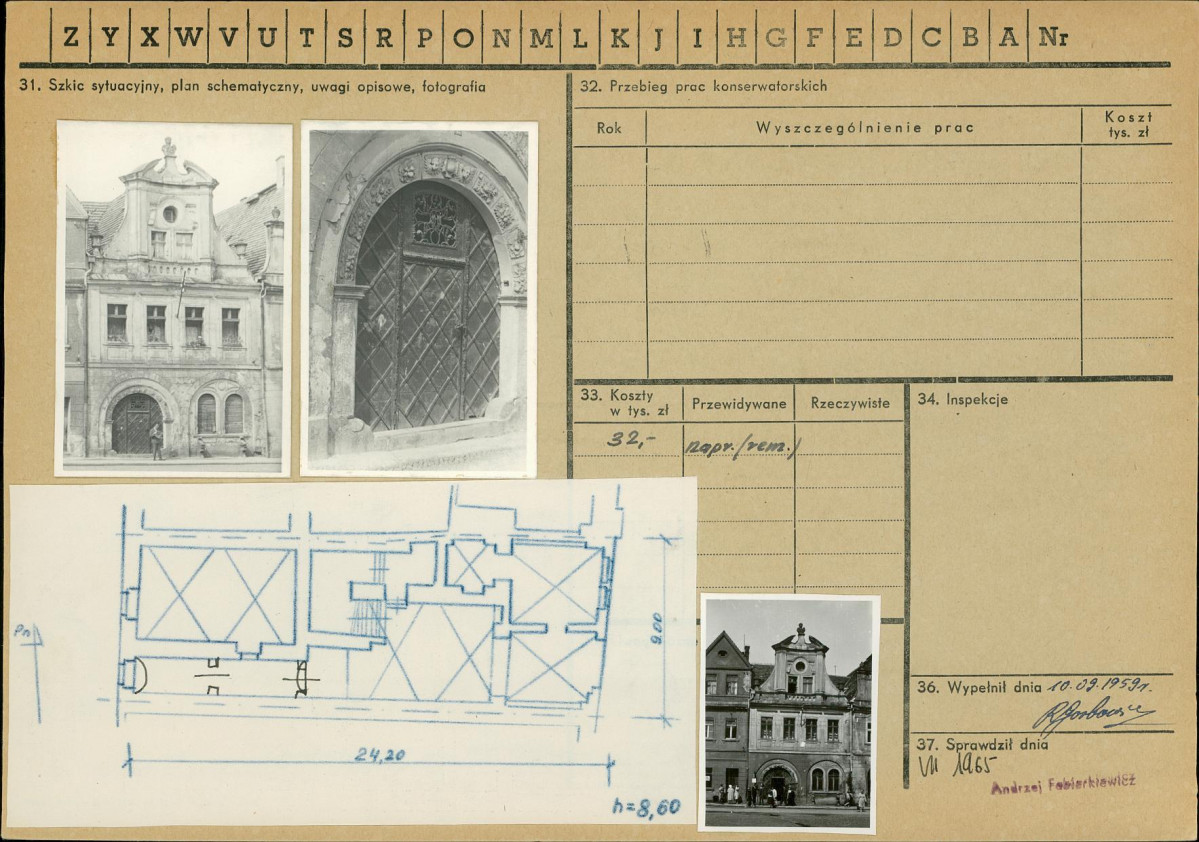 Z Y X W V U T S R P O N M L K J I H G F E D C B A Nr
31. Szkic sytuacyjny, plan schematyczny, uwagi opisowe, fotografia
32. Przebieg prac konserwatorskich
Rok
Wyszczególnienie prac
Koszt
tys. zł
33. Koszty
w tys. zł
Przewidywane
Rzeczywiste
32,-
napr. (rem.)
34. Inspekcje
Pn
9.00
24,20
h=8,60
36. Wypełnił dnia 10.09.1959r.
37. Sprawdził dnia
VII 1965
Andrzej Fabierkiewicz